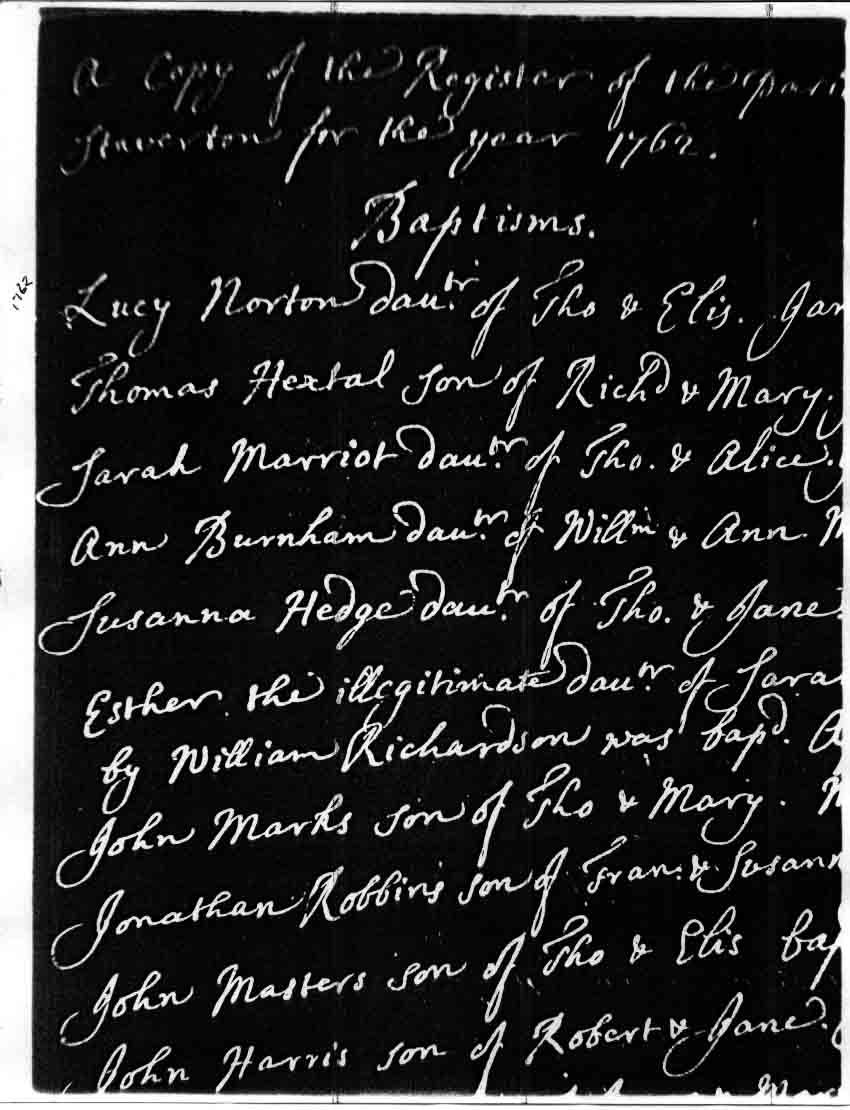 A Copy of the Register of the Pari
Staverton for the year 1762.
Baptisms.
1762
Lucy Norton dautr. of Tho & Elis. Jan
Thomas Hextal son of Richd & Mary.
Sarah Marriot dautr. of Tho. & Alice.
Ann Burnham dautr. of Willm & Ann. M
Susanna Hedge dautr. of Tho. & Jane.
Esther the illegitimate dautr. of Sara
by William Richardson was bapd. A
John Marks son of Tho & Mary. M
Jonathan Robbins son of Fran: & Susann
John Masters son of Tho & Elis bap
John Harris son of Robert & Jane.